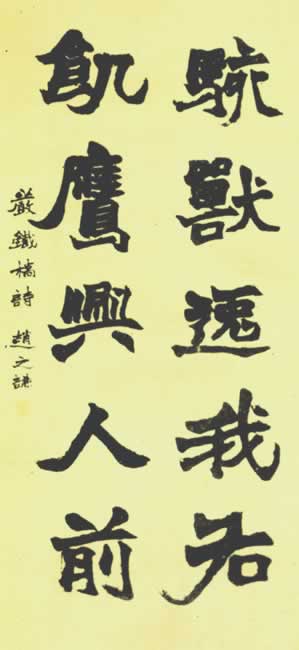 駭獸逸我右
飢鷹興人前
嚴鐵橋詩 趙之謙